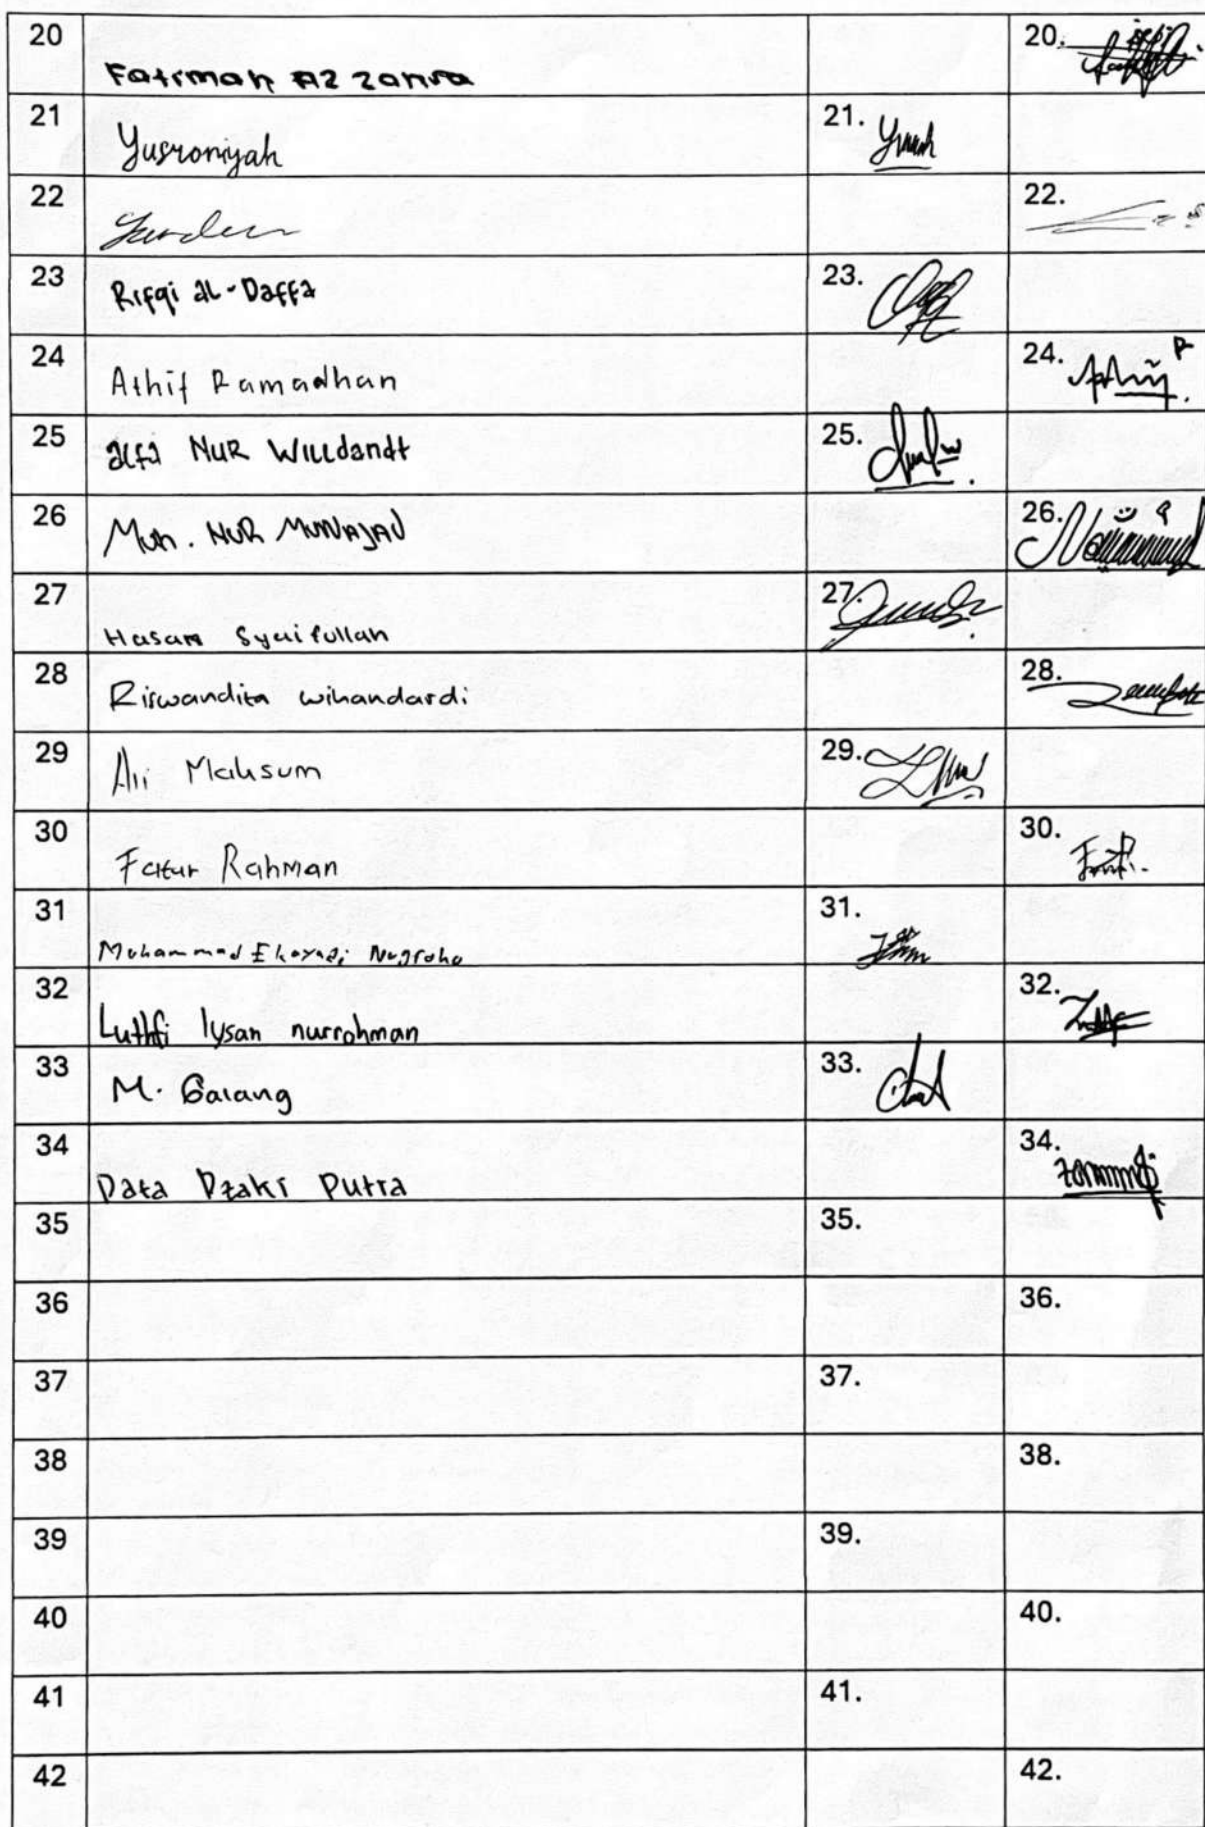 20 Fatimah Az zahra 20.
21 Yusroniyah 21.
22 22.
23 Rifqi al-Daffa 23.
24 Athif Ramadhan 24.
25 alfa NUR Willdandt 25.
26 Muh. NUR MUNAJAD 26.
27 Hasan Syaifullah 27.
28 Riswandita wihandardi 28.
29 Ali Mahsum 29.
30 Fatur Rahman 30.
31 Muhammad Ekayadi Nugroho 31.
32 Luthfi lysan nurrohman 32.
33 M. Galang 33.
34 Data Dzaki Putra 34.
35 35.
36 36.
37 37.
38 38.
39 39.
40 40.
41 41.
42 42.